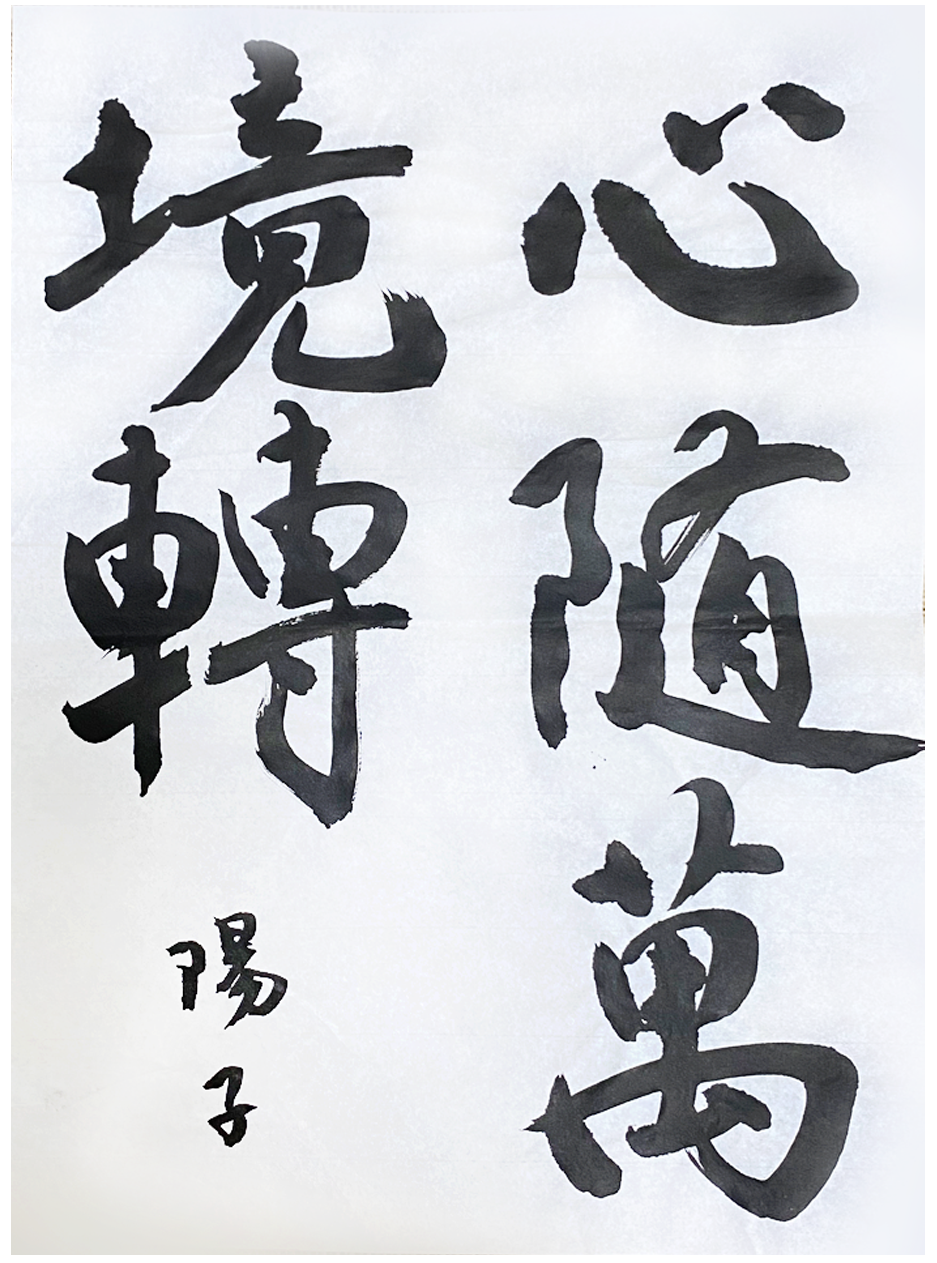 心随萬
境轉
陽子